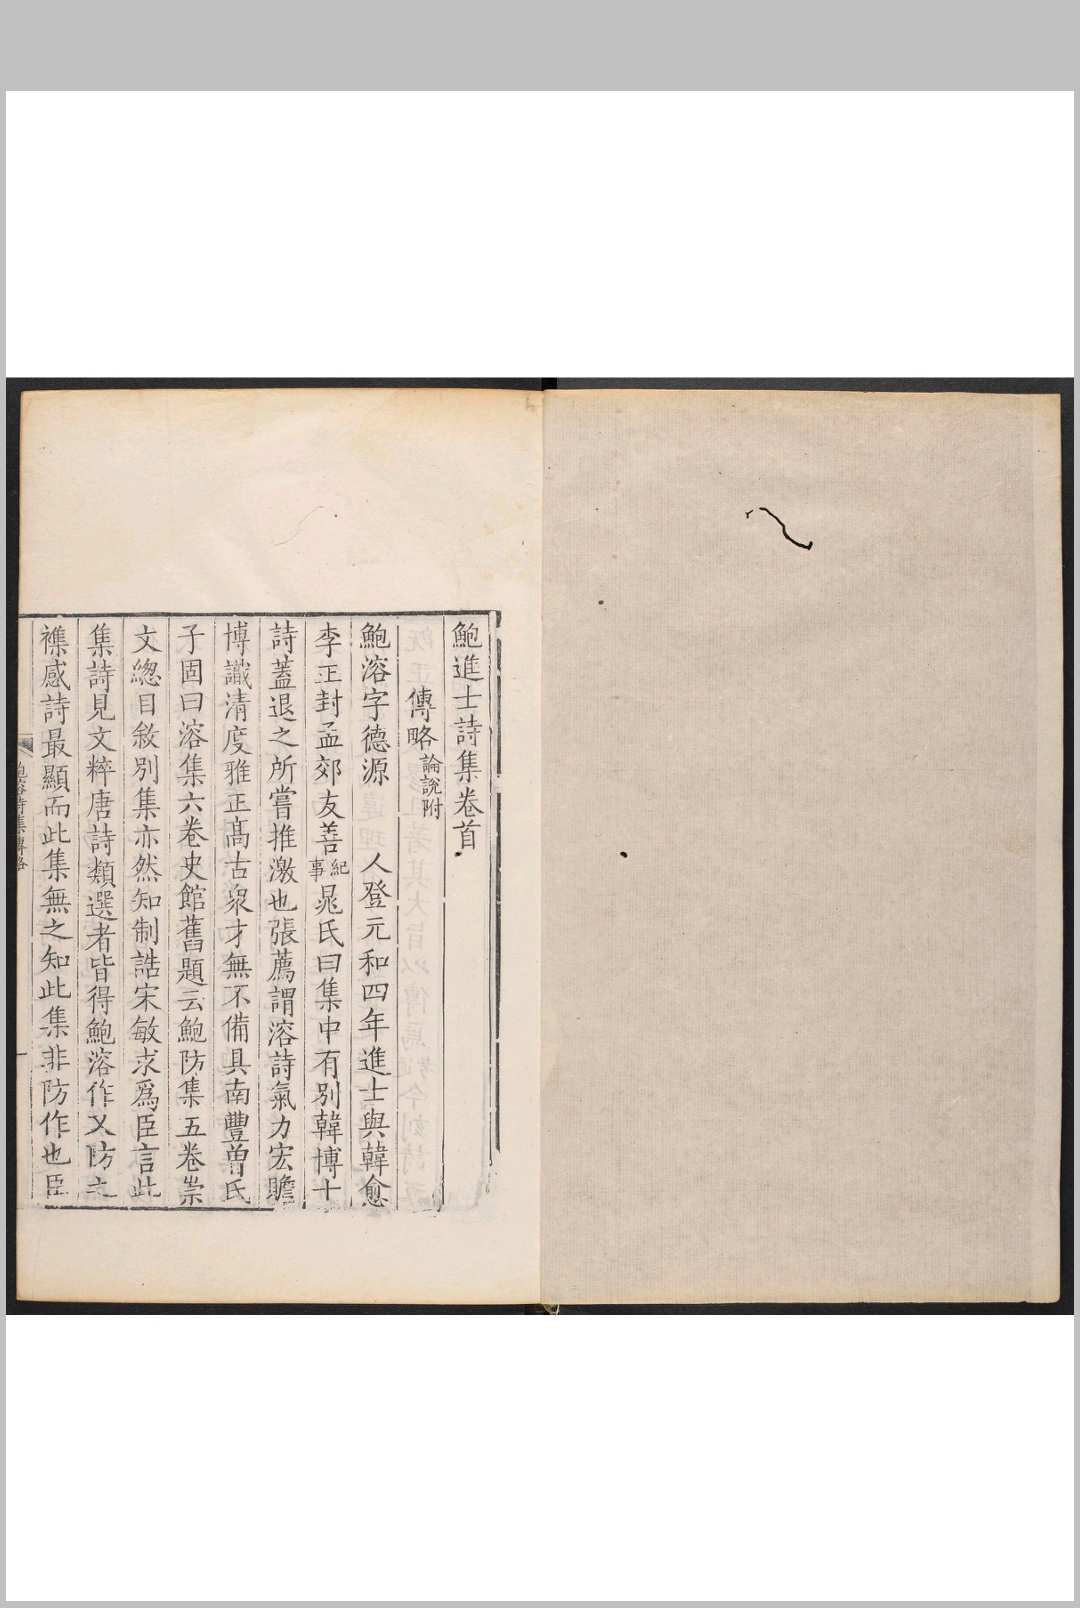 鮑進士詩集卷首
傳略論說附
鮑溶字德源 人登元和四年進士與韓愈
李正封孟郊友善紀事晁氏曰集中有別韓博士
詩蓋退之所嘗推激也張薦謂溶詩氣力宏贍
博識清度雅正髙古衆才無不備具南豐曾氏
子固曰溶集六卷史館舊題云鮑防集五卷崇
文總目敘別集亦然知制誥宋敏求爲臣言此
集詩見文粹唐詩類選者皆得鮑溶作又防之
襍感詩最顯而此集無之知此集非防作也臣